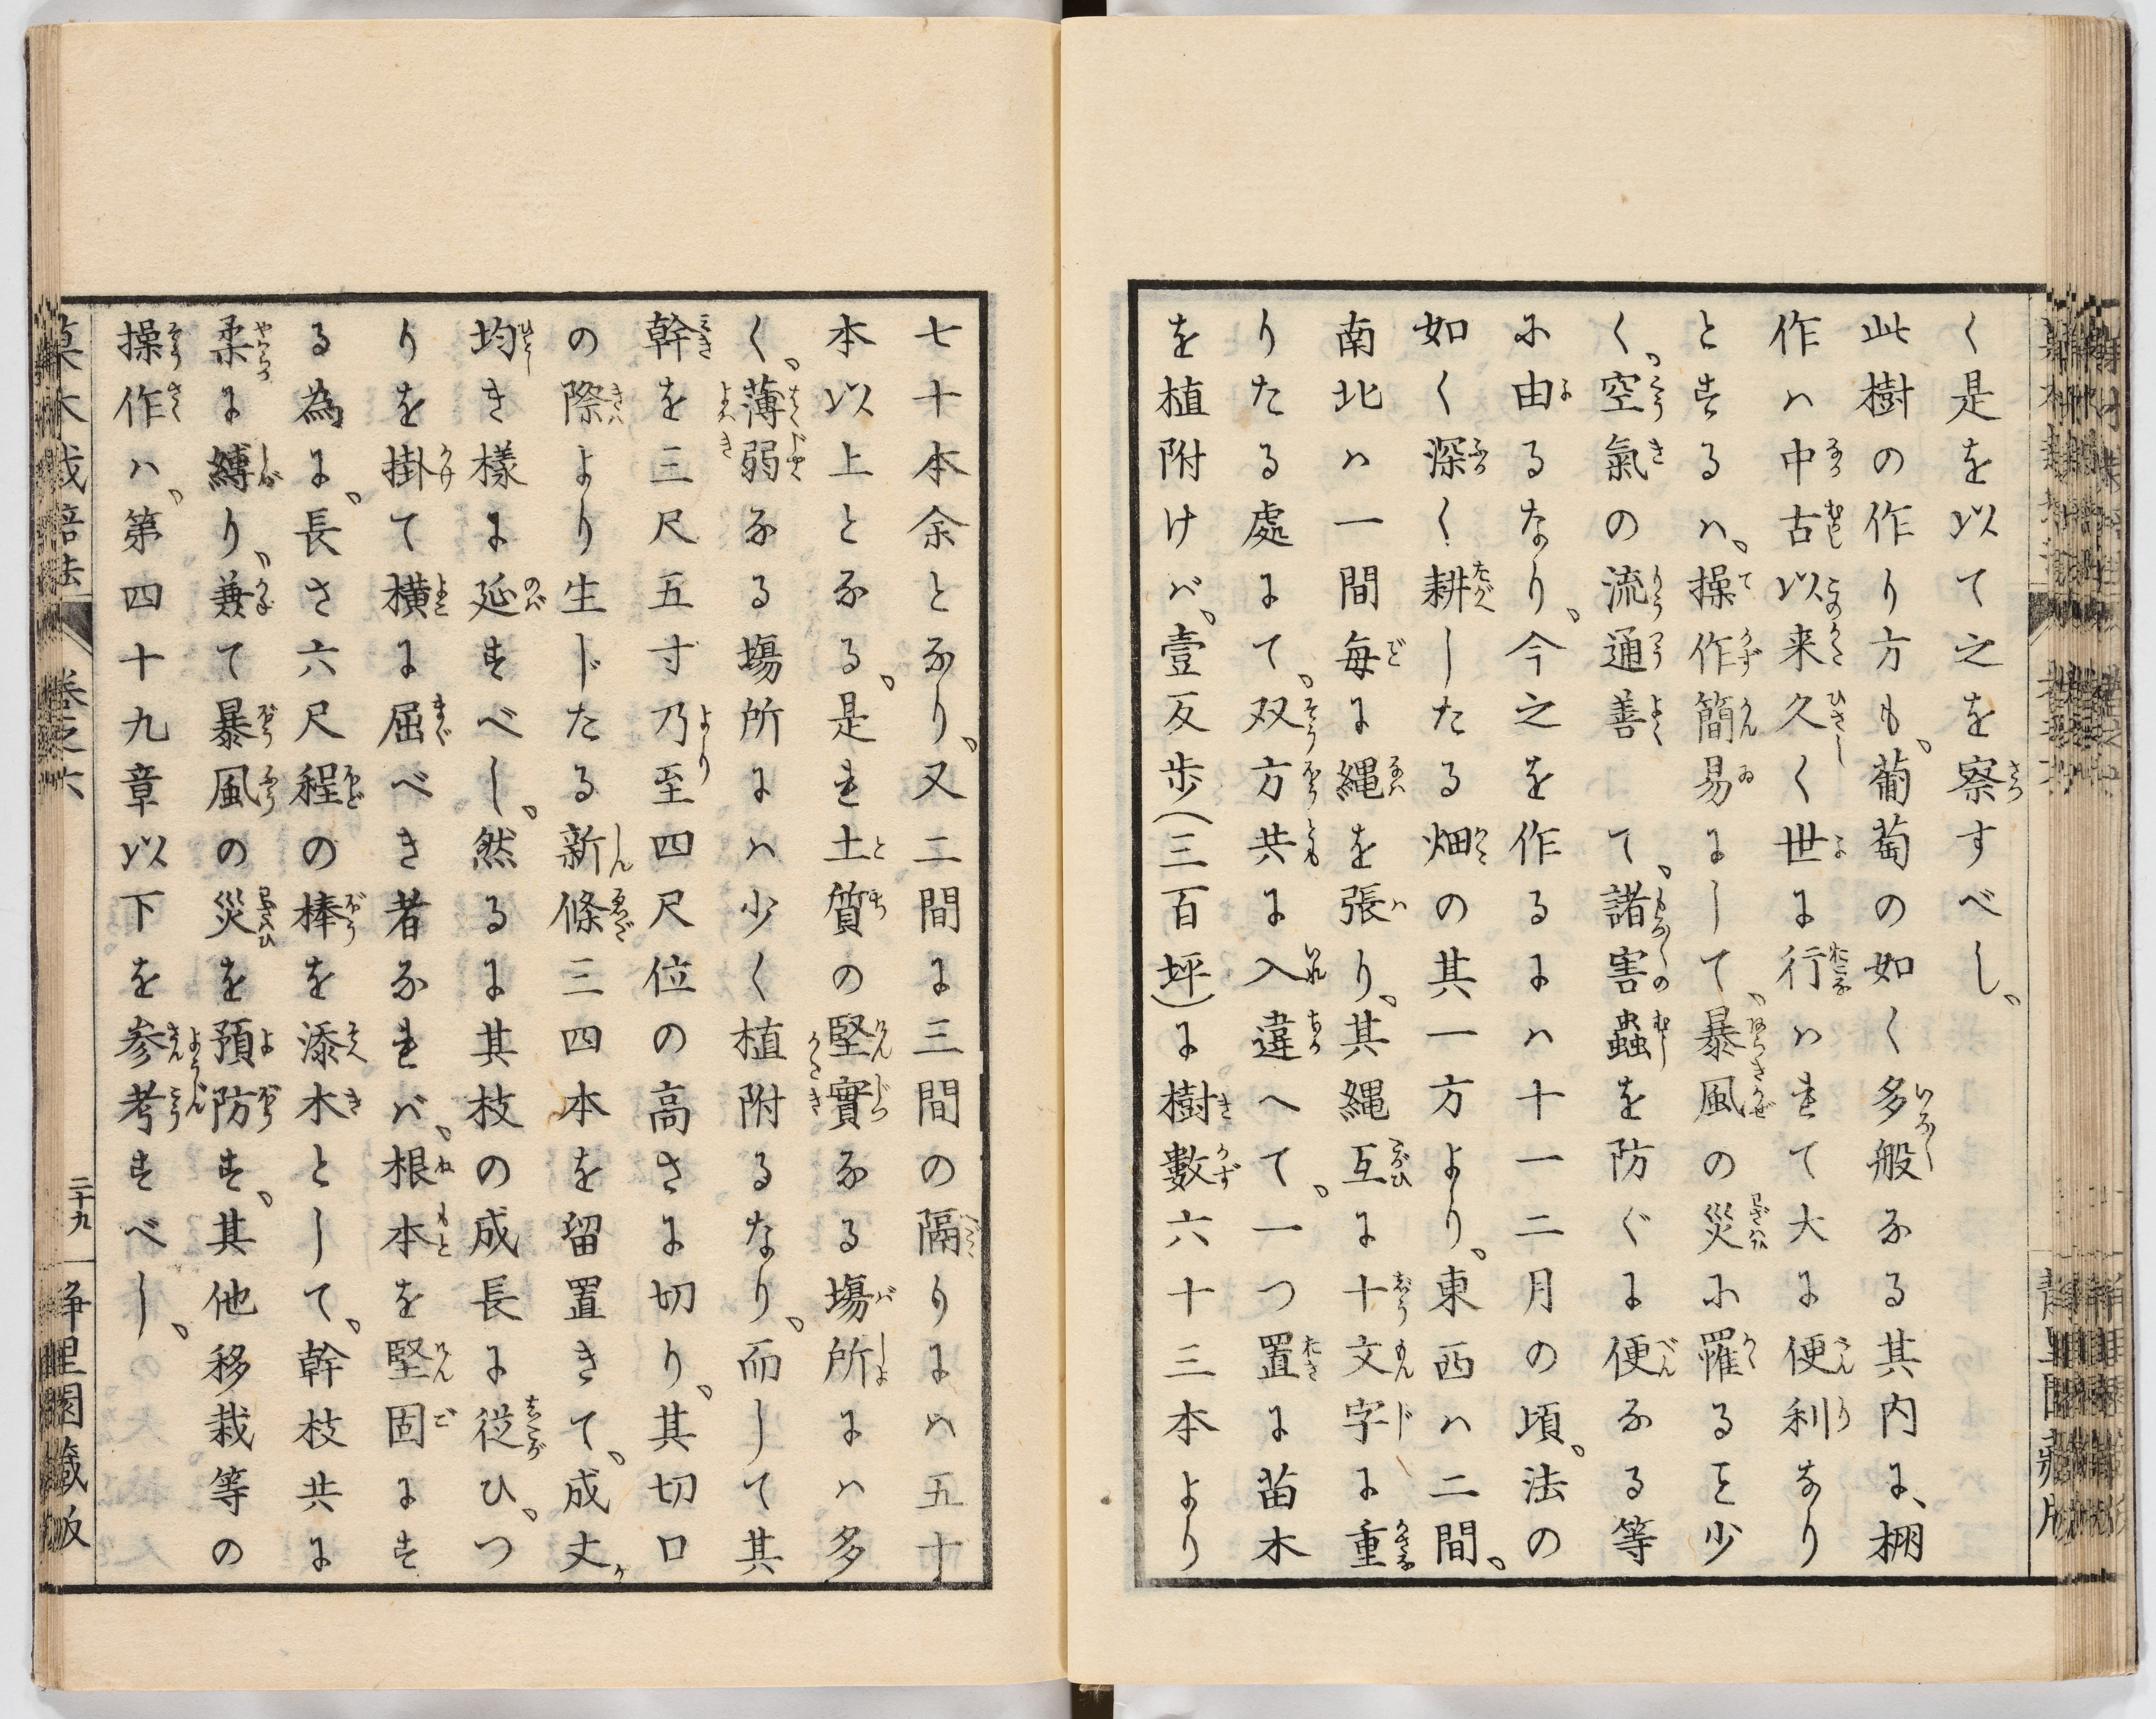 く是を以て之を察すべし、
此樹の作り方も、葡萄の如く多般なる其内に、棚
作ハ中古以来久く世に行ハれて大に便利なり
とするハ、操作簡易にして、暴風の災に罹るを少
く、空氣の流通善て、諸害蟲を防ぐに便なる等
に由るなり、今之を作るにハ十一二月の頃、法の
如く深く耕したる畑の其一方より、東西ハ二間、
南北ハ一間毎に縄を張り、其縄互に十文字に重
りたる處にて、双方共に入違へて、一つ置に苗木
を植附けバ、壹反歩(三百坪)に樹數六十三本より
七十本余となり、又二間に三間の隔りにハ五十
本以上となる、是れ土質の堅實なる塲所にハ多
く、薄弱なる塲所にハ少く植附るなり、而して其
幹を三尺五寸乃至四尺位の高さに切り、其切口
の際より生じたる新條三四本を留置きて、成丈ケ
均き様に延すべし、然るに其枝の成長に従ひ、つ
りを掛て横に屈べき者なれバ、根本を堅固にす
る為に、長さ六尺程の棒を添木として、幹枝共に
柔に縛り、兼て暴風の災を預防す、其他移栽等の
操作ハ、第四十九章以下を参考すべし、
菓木栽培法 巻之六 二十九 静里園藏版